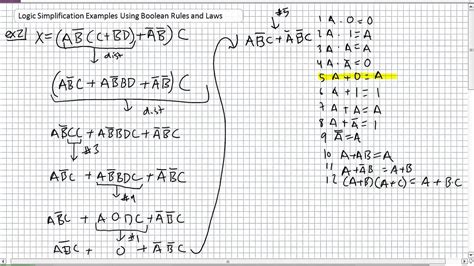 Logic Simplification Examples Using Boolean Rules and Laws
ex2) X = (AB̅(C+BD)+A̅B̅)C
dist
(AB̅C + AB̅BD + A̅B̅)C
dist
AB̅CC + AB̅BDC + A̅B̅C
#3
AB̅C + AB̅BDC + A̅B̅C
#4
AB̅C + A0DC + A̅B̅C
#1
AB̅C + 0 + A̅B̅C
#5
AB̅C + A̅B̅C
1 A · 0 = 0
2 A · 1 = A
3 A · A = A
4 A · A̅ = 0
5 A + 0 = A
6 A + 1 = 1
7 A + A = A
8 A + A̅ = 1
9 A̿ = A
10 A + AB = A
11 A + A̅B = A + B
12 (A+B)(A+C) = A + BC